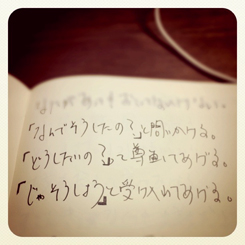 「なんでそうしたの?」と問いかける。
「どうしたいの?」と尊重してあげる。
「じゃそうしよう」と受け入れてあげる。